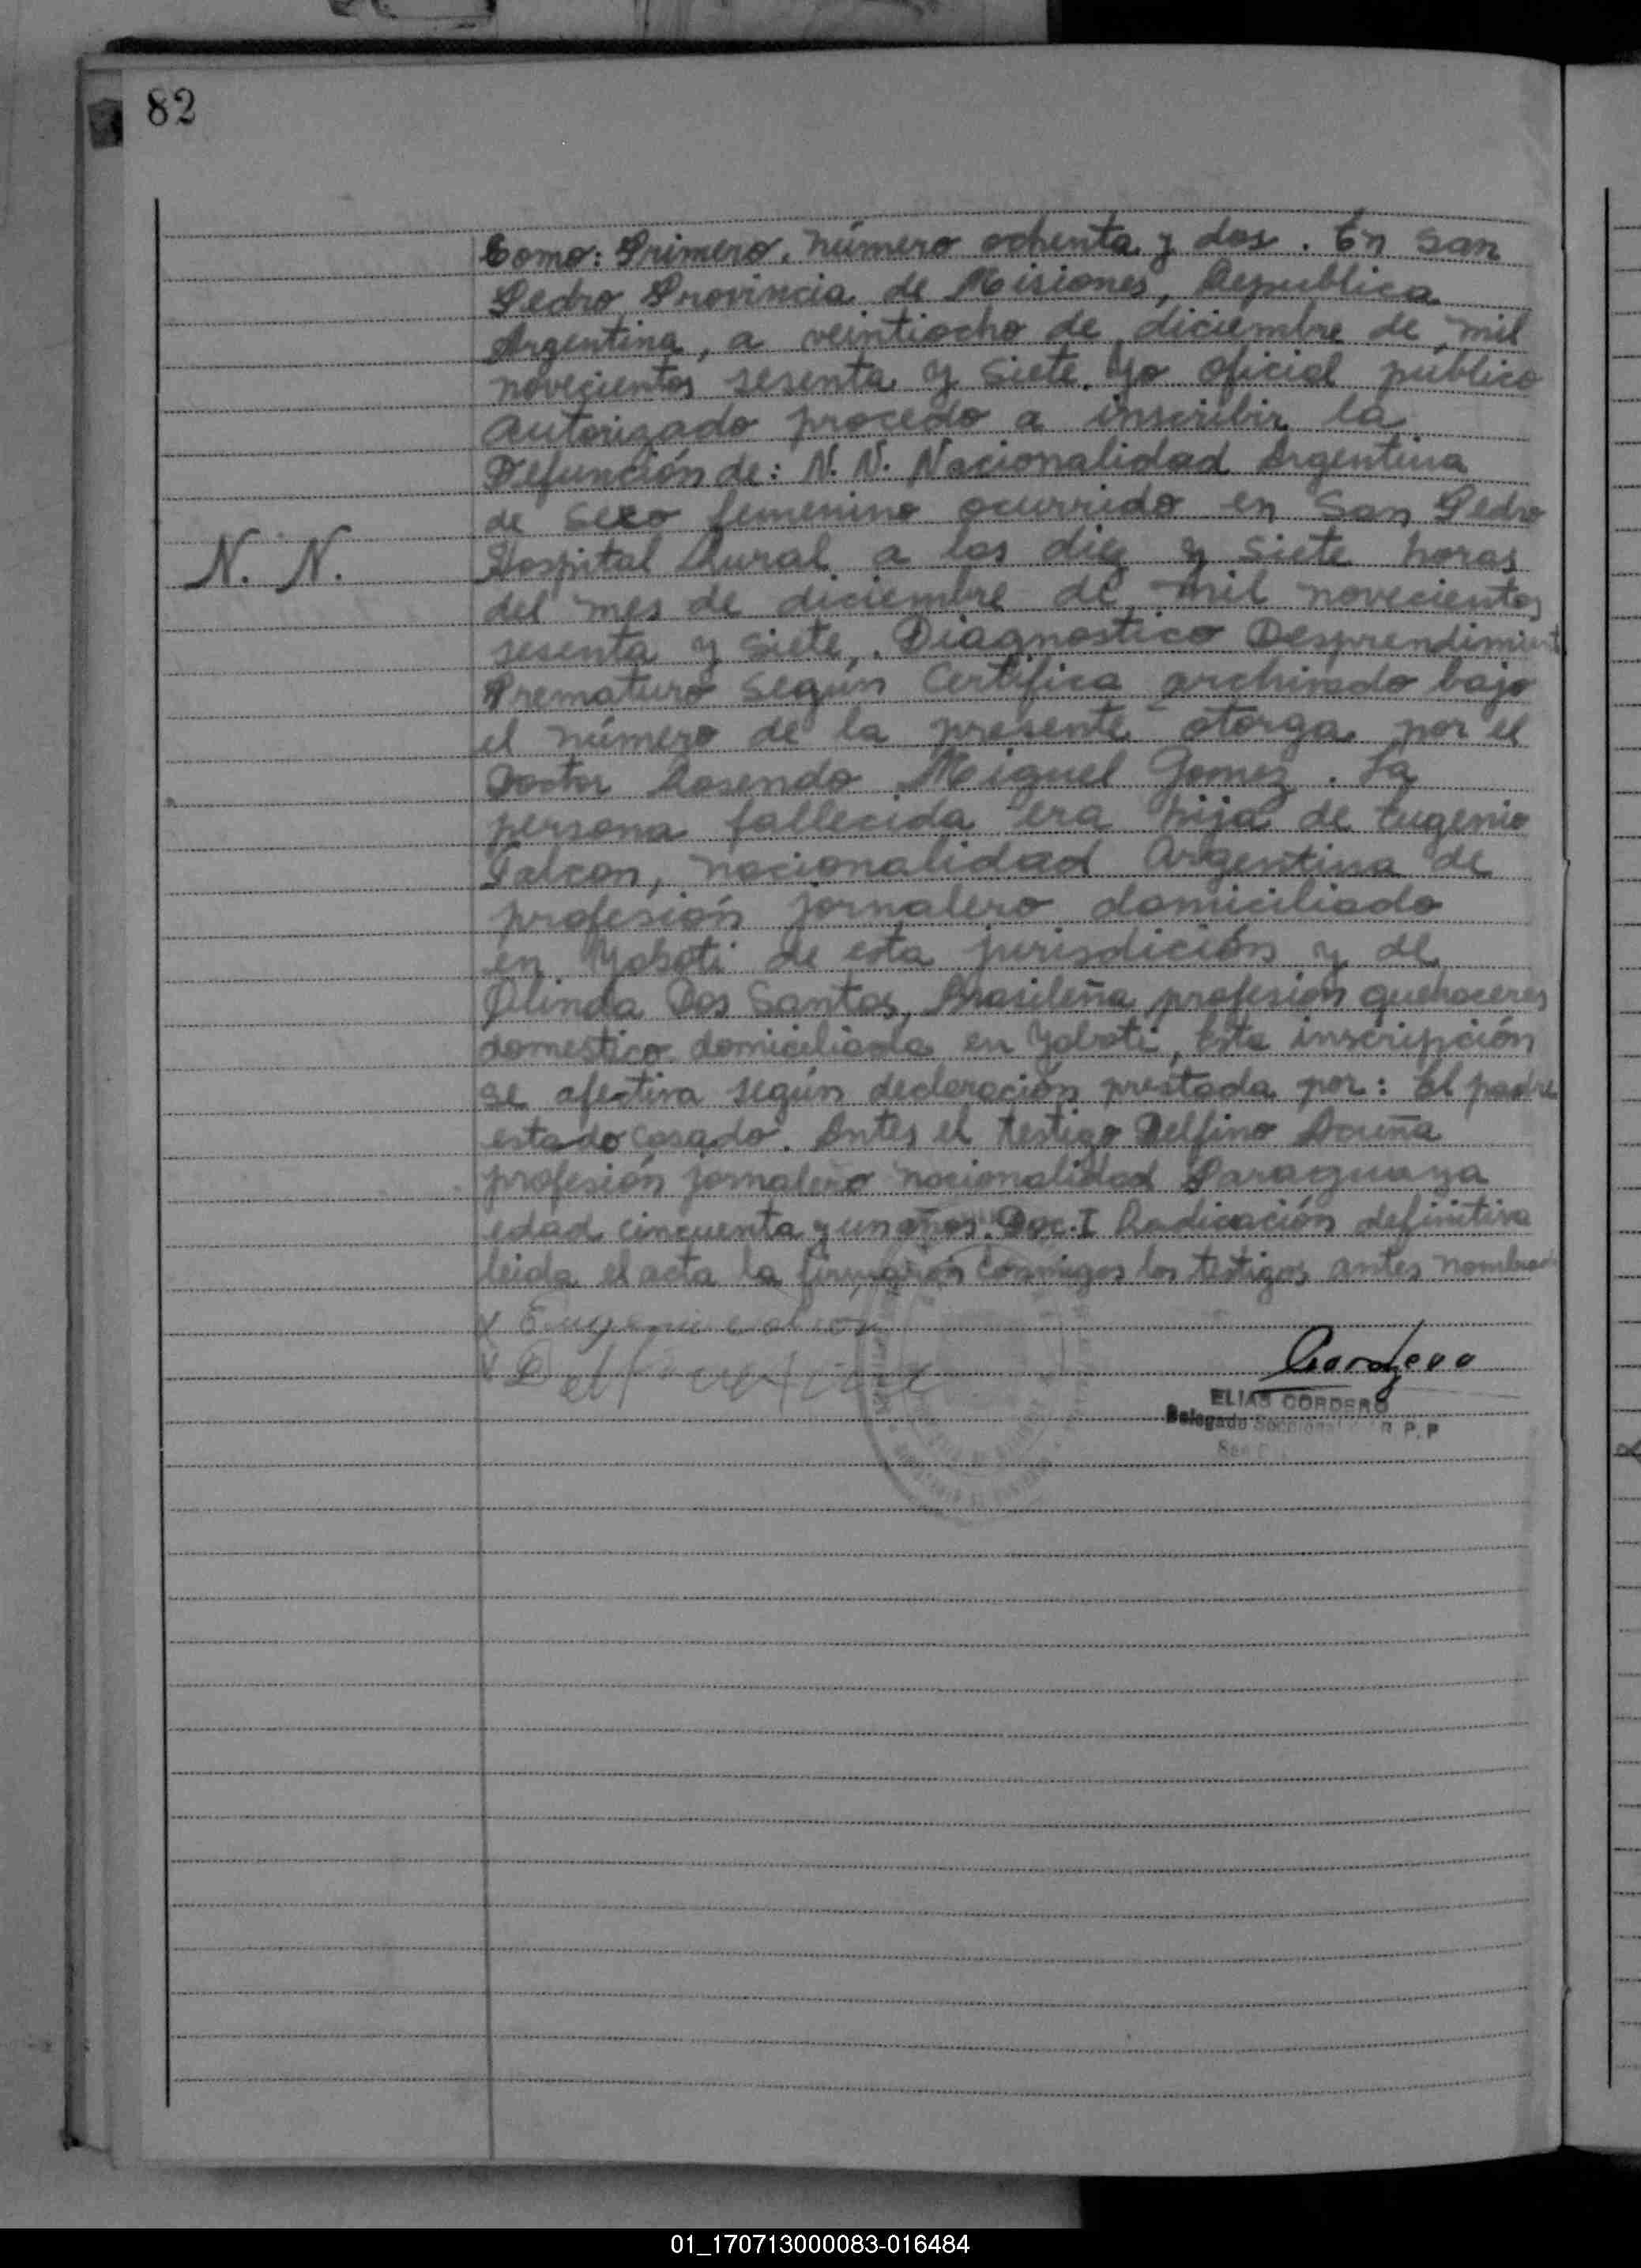 82
Tomo: Primero. número ochenta y dos. En San
Pedro Provincia de Misiones, Republica
Argentina, a veintiocho de diciembre de mil
novecientos sesenta y siete. Yo oficial público
autorizado procedo a inscribir la
Defunción de: N. N. Nacionalidad Argentina
de sexo femenino ocurrido en San Pedro
N. N.
Hospital Rural a las diez y siete horas
del mes de diciembre de mil novecientos
sesenta y siete,. Diagnostico Desprendimient
Prematuro Según Certifica archivado bajo
el número de la presente otorga por el
Doctor Rosendo Miguel Gomez. La
persona fallecida era hija de Eugenio
Falcon, nacionalidad Argentina de
profesión jornalero domiciliado
en Yaboti de esta jurisdición y de
Olinda Dos Santos, Brasileña profesión quehaceres
domestico domiciliada en Yaboti, Esta inscripción
se afectiva según declaración prestada por: El padre
estado casado. Antes el testigo Delfino Acuña
profesión jornalero nacionalidad Paraguaya
edad cincuenta y un años. Doc. I Radicación definitiva
leida el acta la firmaron conmigos los testigos antes nombrad
ELIAS CORDERO
Delegado Seccional P.P
01_170713000083-016484